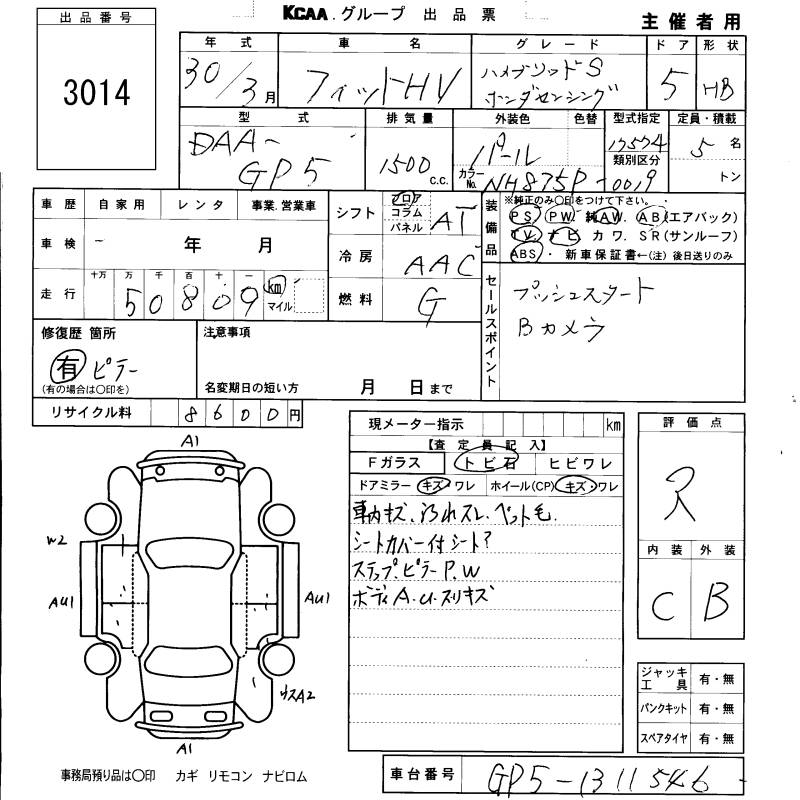 KCAA.グループ 出品票
主催者用
出品番号
3014
年式 車名 グレード ドア 形状
30/3月 フィットHV ハイブリッドS ホンダセンシング 5 HB
型式 排気量 外装色 色替 型式指定 定員・積載
DAA-GP5 1500 c.c. パール カラーNo. NH875P 17574 類別区分 -0019 5名 トン
車歴 自家用 レンタ 事業.営業車
車検 - 年 月
走行 十万 万 千 百 十 一
50809 km マイル
シフト フロア コラム パネル AT
冷房 AAC
燃料 G
装備品 ※純正のみ○印をつけて下さい。
PS PW 純AW. AB(エアバック)
TV ナビ カワ. SR(サンルーフ)
ABS・新車保証書←(注)後日送りのみ
セールスポイント
プッシュスタート
Bカメラ
修復歴 箇所
有 ピラー
(有の場合は○印を)
注意事項
名変期日の短い方 月 日まで
リサイクル料 8600円
現メーター指示 km
【査定員記入】
Fガラス トビ石 ヒビワレ
ドアミラー キズ・ワレ ホイール(CP) キズ・ワレ
車内キズ、汚れスレ、ペット毛.
シートカバー付シート?
ステップ.ピラーP.W
ボディA.U.スリキズ
評価点
R
内装 外装
C B
A1
W2
AU1
AU1
ウスA2
A1
ジャッキ工具 有・無
パンクキット 有・無
スペアタイヤ 有・無
事務局預り品は○印 カギ リモコン ナビロム
車台番号 GP5-1311546